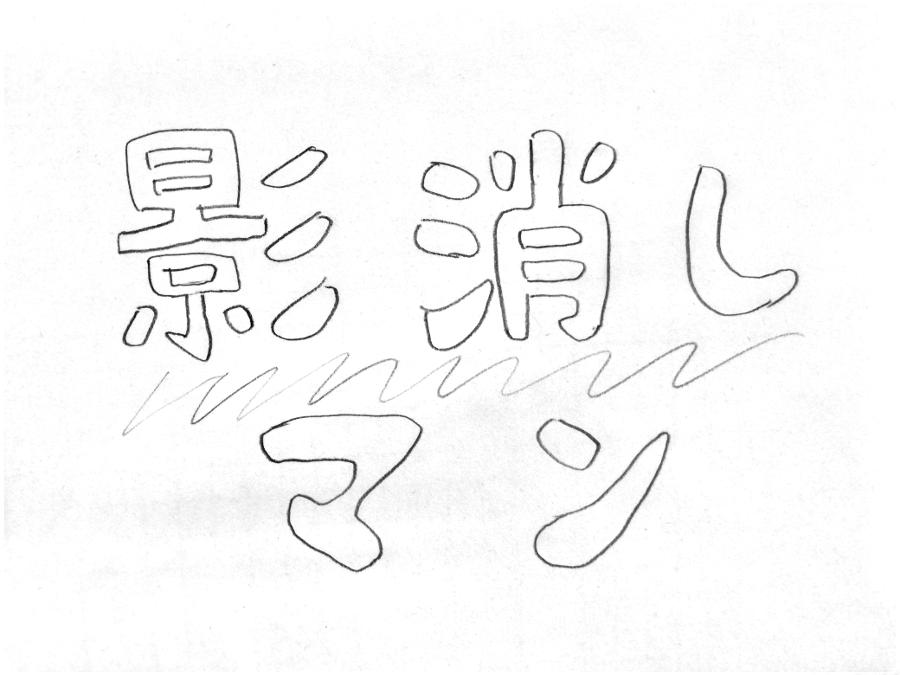 影消し
マン